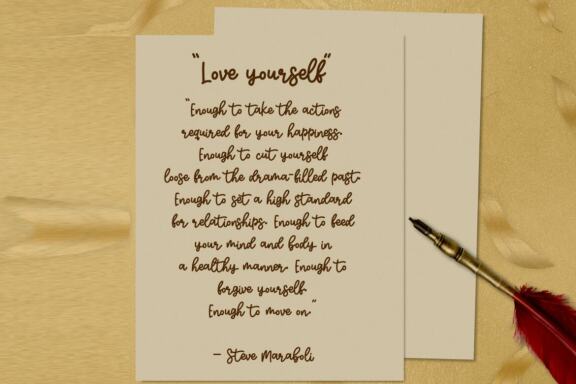 "Love yourself"
"Enough to take the actions
required for your happiness.
Enough to cut yourself
loose from the drama-filled past.
Enough to set a high standard
for relationships. Enough to feed
your mind and body in
a healthy manner. Enough to
forgive yourself.
Enough to move on."
– Steve Maraboli